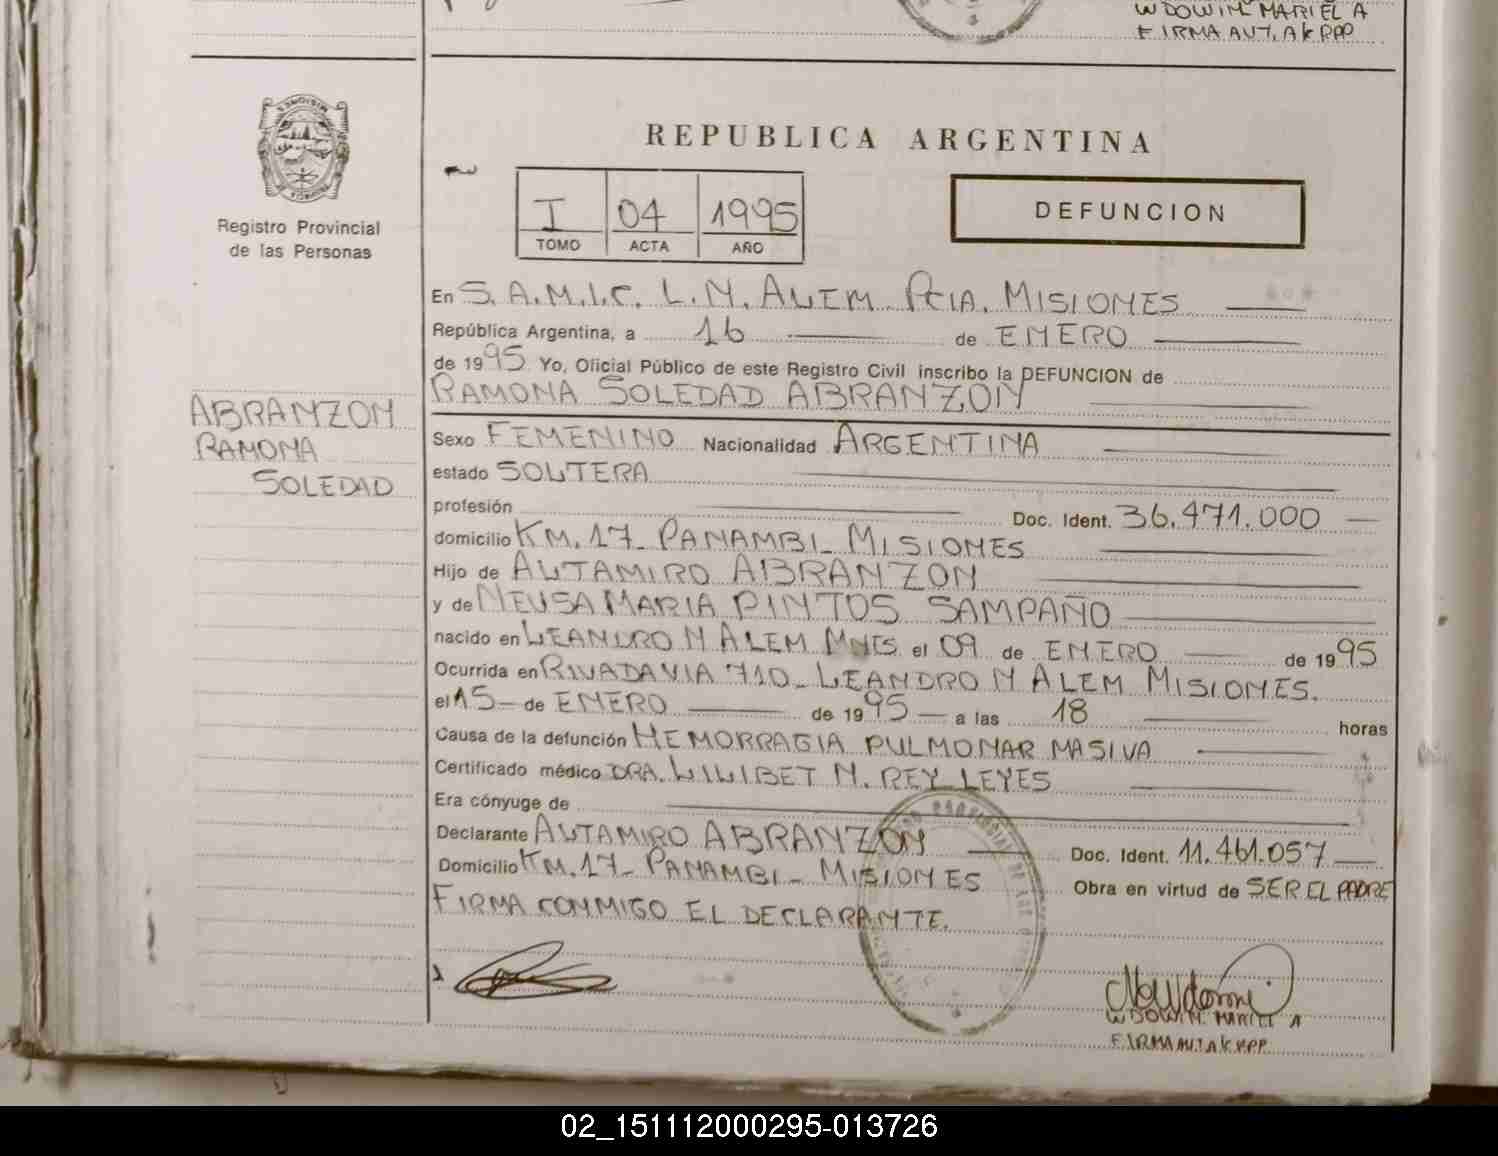 WDOWIN MARIEL A
FIRMA AUT. A K RPP
MISIONES
Registro Provincial
de las Personas
REPUBLICA ARGENTINA
I 04 1995
TOMO ACTA AÑO
DEFUNCION
En S.A.M.I.C. L.N. ALEM PCIA. MISIONES
República Argentina, a 16 de ENERO
de 1995 Yo, Oficial Público de este Registro Civil inscribo la DEFUNCION de
RAMONA SOLEDAD ABRANZON
ABRANZON
RAMONA
SOLEDAD
Sexo FEMENINO Nacionalidad ARGENTINA
estado SOLTERA
profesión Doc. Ident. 36.471.000
domicilio KM. 17 - PANAMBI - MISIONES
Hijo de ALTAMIRO ABRANZON
y de NEUSA MARIA PINTOS SAMPAÑO
nacido en LEANDRO N ALEM MNES el 09 de ENERO de 1995
Ocurrida en RIVADAVIA 710 - LEANDRO N ALEM MISIONES.
el 15 de ENERO de 1995 a las 18 horas
Causa de la defunción HEMORRAGIA PULMONAR MASIVA
Certificado médico DRA. LILIBET N. REY LEYES
Era cónyuge de
Declarante ALTAMIRO ABRANZON Doc. Ident. 11.461.057
Domicilio KM. 17 - PANAMBI - MISIONES Obra en virtud de SER EL PADRE
FIRMA CONMIGO EL DECLARANTE.
WDOWIN MARIEL A
FIRMA AUT. A K RPP
02_151112000295-013726